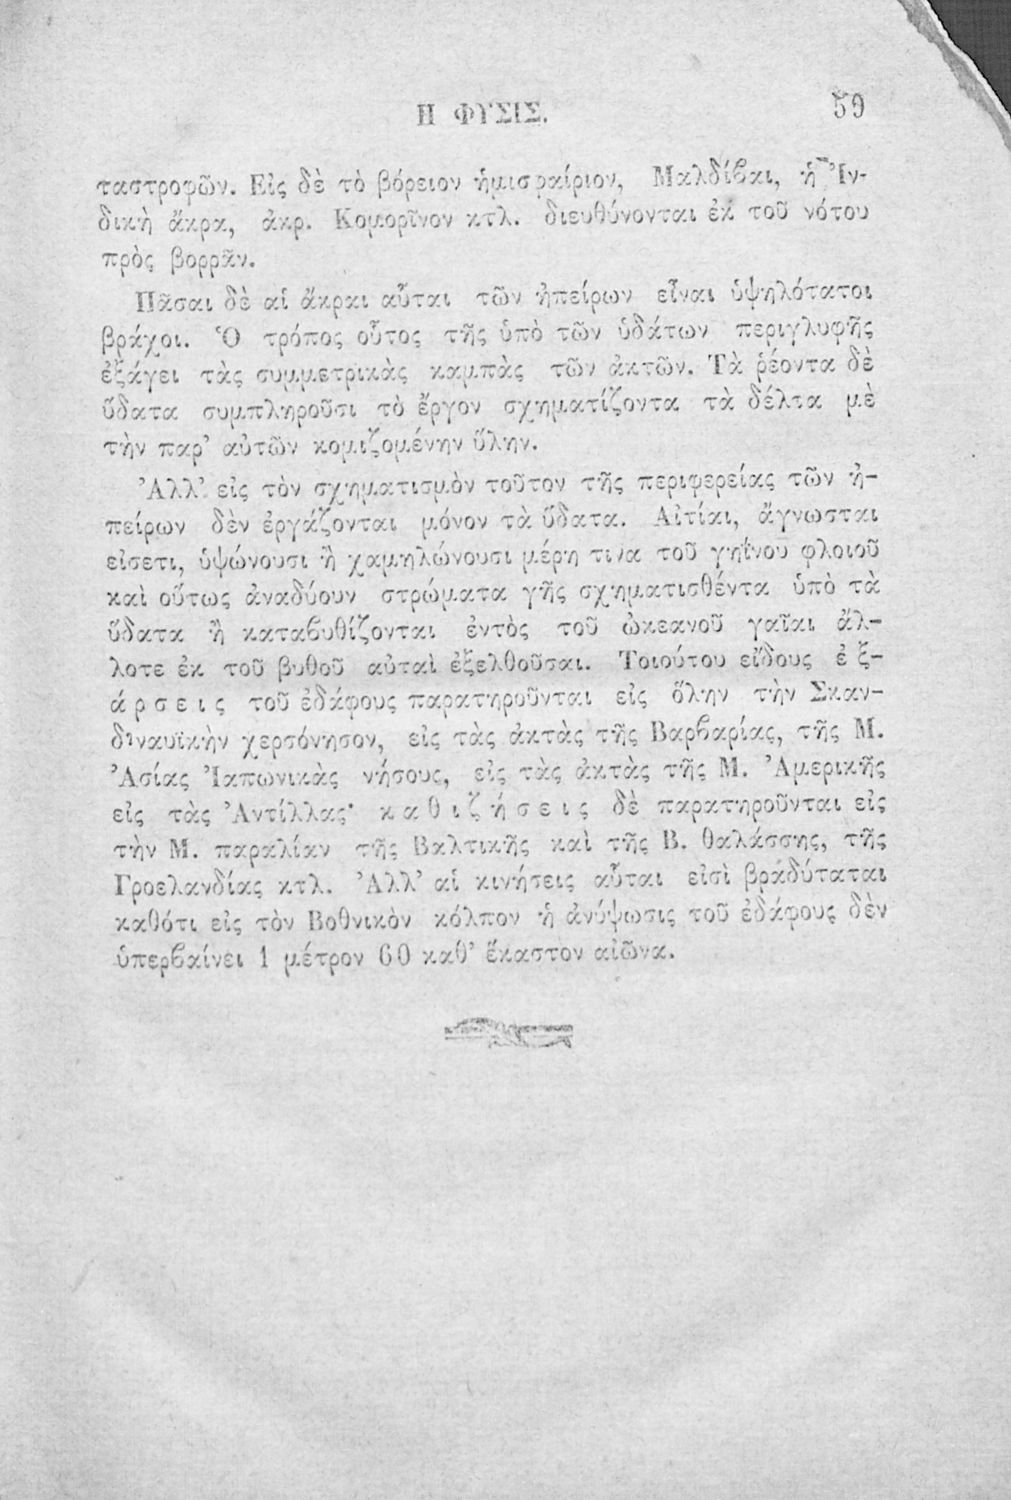 Η ΦΥΣΙΣ.
59
ταστροφῶν. Εἰς δὲ τὸ βόρειον ἡμισφαίριον, Μαλδίβαι, ἡ Ἰν-
δικὴ ἄκρα, ἀκρ. Κομορῖνον κτλ. διευθύνονται ἐκ τοῦ νότου
πρὸς βορρᾶν.
Πᾶσαι δὲ αἱ ἄκραι αὗται τῶν ἠπείρων εἶναι ὑψηλότατοι
βράχοι. Ὁ τρόπος οὗτος τῆς ὑπὸ τῶν ὑδάτων περιγλυφῆς
ἐξάγει τὰς συμμετρικὰς καμπὰς τῶν ἀκτῶν. Τὰ ῥέοντα δὲ
ὕδατα συμπληροῦσι τὸ ἔργον σχηματίζοντα τὰ δέλτα μὲ
τὴν παρ' αὐτῶν κομιζομένην ὕλην.
Ἀλλ' εἰς τὸν σχηματισμὸν τοῦτον τῆς περιφερείας τῶν ἠ-
πείρων δὲν ἐργάζονται μόνον τὰ ὕδατα. Αἰτίαι, ἄγνωσται
εἰσετι, ὑψώνουσι ἢ χαμηλώνουσι μέρη τινα τοῦ γηΐνου φλοιοῦ
καὶ οὕτως ἀναδύουν στρώματα γῆς σχηματισθέντα ὑπὸ τὰ
ὕδατα ἢ καταβυθίζονται ἐντὸς τοῦ ὠκεανοῦ γαῖαι ἄλ-
λοτε ἐκ τοῦ βυθοῦ αὐταὶ ἐξελθοῦσαι. Τοιούτου εἴδους ἐξ-
άρσεις τοῦ ἐδάφους παρατηροῦνται εἰς ὅλην τὴν Σκαν-
διναυϊκὴν χερσόνησον, εἰς τὰς ἀκτὰς τῆς Βαρβαρίας, τῆς Μ.
Ἀσίας Ἰαπωνικὰς νήσους, εἰς τὰς ἀκτὰς τῆς Μ. Ἀμερικῆς
εἰς τὰς Ἀντίλλας· καθιζήσεις δὲ παρατηροῦνται εἰς
τὴν Μ. παραλίαν τῆς Βαλτικῆς καὶ τῆς Β. θαλάσσης, τῆς
Γροελανδίας κτλ. Ἀλλ' αἱ κινήσεις αὗται εἰσὶ βραδύταται
καθότι εἰς τὸν Βοθνικὸν κόλπον ἡ ἀνύψωσις τοῦ ἐδάφους δὲν
ὑπερβαίνει 1 μέτρον 60 καθ' ἕκαστον αἰῶνα.